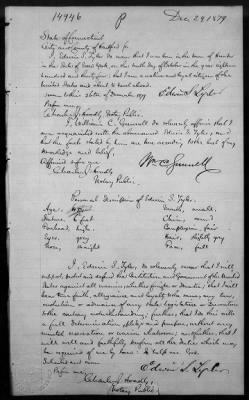 14946
P
Dec 29, 1879
State of Connecticut
City and County of Hartford ss.
I, Edwin S. Tyler do swear that I was born in the town of
in the State of New York, on the ninth day of October in the year eighteen
hundred and thirty four; that I am a native and loyal citizen of the
United States and about to travel abroad.
Sworn this day of December 1879 Edwin S. Tyler
Before me,
Notary Public.
I, William C. do solemnly affirm that I
am acquainted with the above named Edwin S. Tyler, and
that the facts stated by him are true according to the best of my
knowledge and belief,
Affirmed before me
Notary Public.
Personal Description of Edwin S. Tyler.
Age, Mouth, small
Stature, 6 feet Chin,
Forehead, high, Complexion, fair
Eyes, gray Hair, slightly gray
Nose, straight Face, full
I, Edwin S. Tyler, do solemnly swear that I will
support, protect and defend the Constitution and Government of the United
States against all enemies, whether foreign or domestic; that I will
bear true faith, allegiance and loyalty to the same, any law,
resolution or ordinance of any State Legislature or Convention
to the contrary notwithstanding; further, that I do this with
a full determination, pledge and purpose, without any
mental reservation or evasion whatever; and further, that I
will well and faithfully perform all the duties which may
be required of me by law: So help me God.
Subscribed and sworn
Before me, Edwin S. Tyler
Notary Public